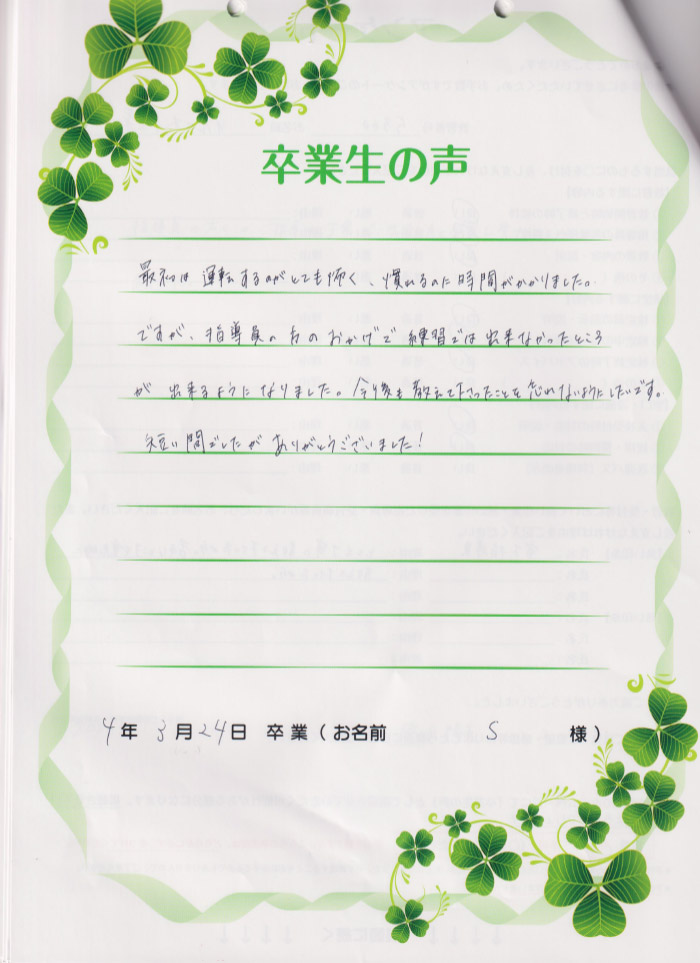 卒業生の声
最初は運転するのがとても怖く、慣れるのに時間がかかりました。
ですが、指導員の方のおかげで練習では出来なかったところ
が出来るようになりました。今後も教えて下さったことを忘れないようにしたいです。
短い間でしたがありがとうございました!
4年 3月24日 卒業(お名前 S 様)